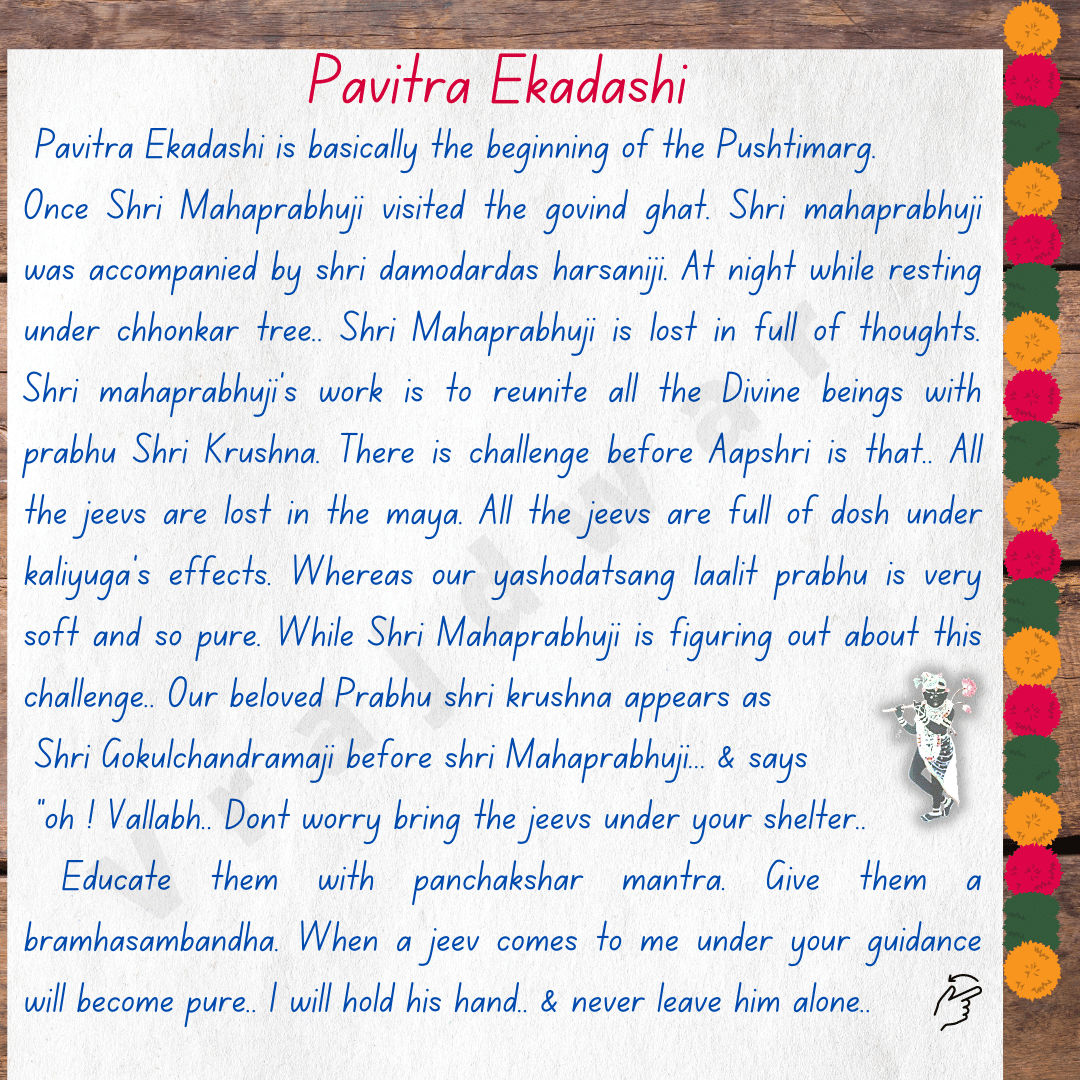 Pavitra Ekadashi
Pavitra Ekadashi is basically the beginning of the Pushtimarg.
Once Shri Mahaprabhuji visited the govind ghat. Shri mahaprabhuji
was accompanied by shri damodardas harsaniji. At night while resting
under chhonkar tree.. Shri Mahaprabhuji is lost in full of thoughts.
Shri mahaprabhuji's work is to reunite all the Divine beings with
prabhu Shri Krushna. There is challenge before Aapshri is that.. All
the jeevs are lost in the maya. All the jeevs are full of dosh under
kaliyuga's effects. Whereas our yashodatsang laalit prabhu is very
soft and so pure. While Shri Mahaprabhuji is figuring out about this
challenge.. Our beloved Prabhu shri krushna appears as
Shri Gokulchandramaji before shri Mahaprabhuji... & says
"oh ! Vallabh.. Dont worry bring the jeevs under your shelter..
Educate them with panchakshar mantra. Give them a
bramhasambandha. When a jeev comes to me under your guidance
will become pure.. I will hold his hand.. & never leave him alone..
vrajdwar